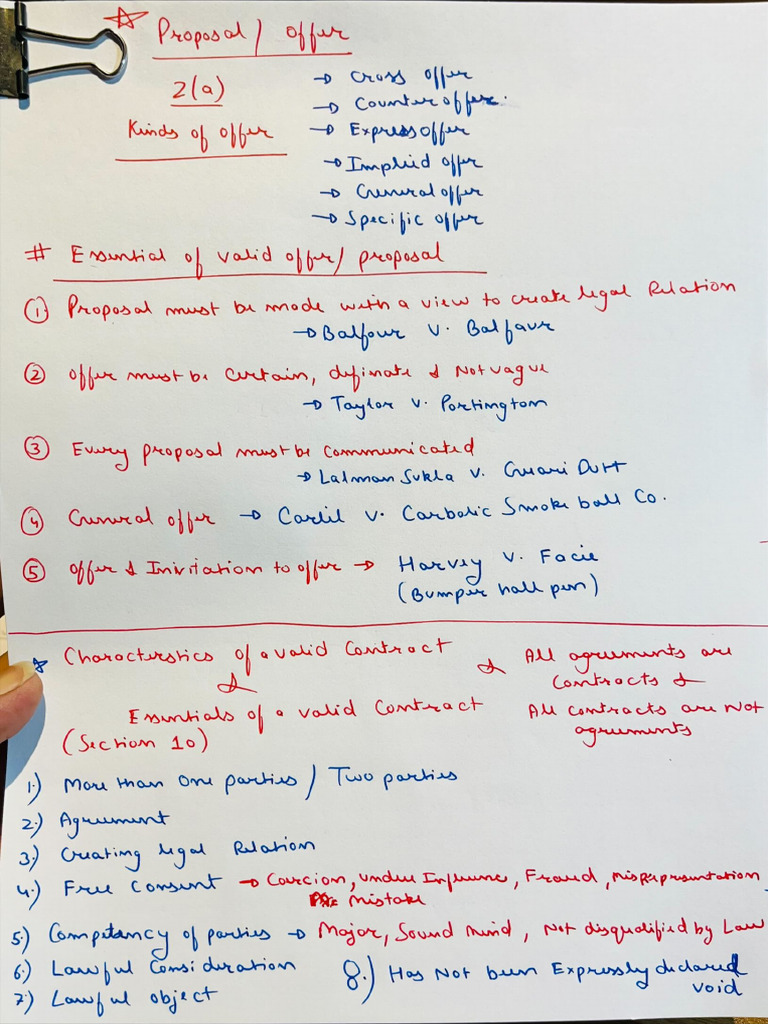 Proposal / offer
2(a)
Kinds of offer
→ Cross offer
→ Counter offer.
→ Express offer
→ Implied offer
→ General offer
→ Specific offer
# Essential of valid offer / proposal
① Proposal must be made with a view to create legal Relation
→ Balfour v. Balfour
② offer must be certain, definate & Not vague
→ Taylor v. Portington
③ Every proposal must be communicated
→ Lalman Sukla v. Guari Dutt
④ General offer → Carlil v. Carbolic Smoke ball Co.
⑤ offer & Invitation to offer → Harvey v. Facie
(Bumper hall pen)
Characterstics of a valid Contract
&
Essentials of a valid Contract
(Section 10)
& All agreements are
contracts &
All contracts are Not
agreements
1.) More than one parties / Two parties
2.) Agreement
3.) Creating legal Relation
4.) Free Consent → Coercion, undue Influence, Fraud, misrepresentation
mistake
5.) Competency of parties → Major, Sound mind, Not disqualified by Law
6.) Lawful Consideration
7.) Lawful object
8.) Has Not been Expressly declared
void